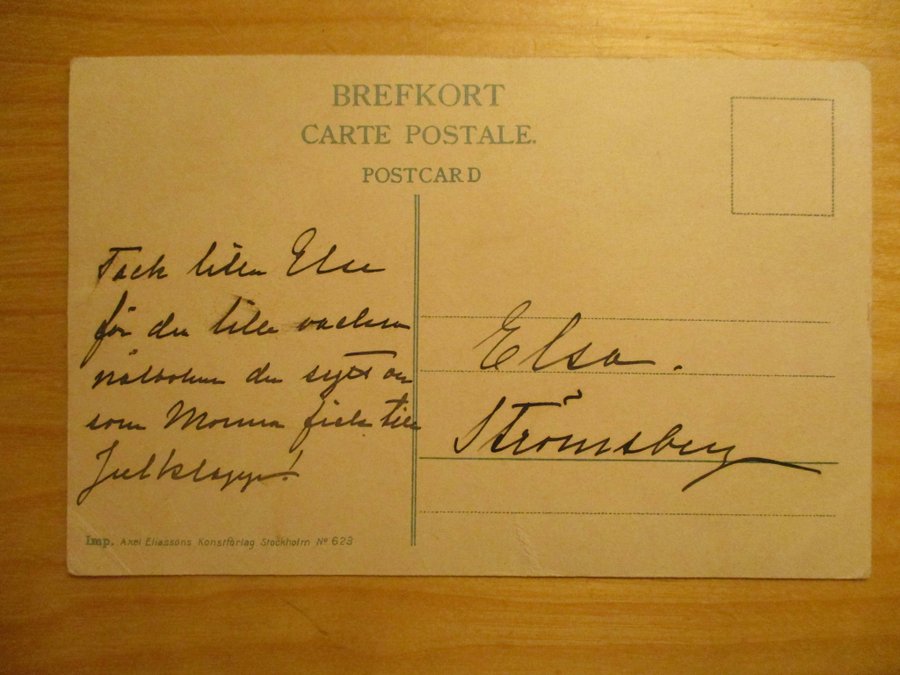 BREFKORT
CARTE POSTALE.
POSTCARD
Tack lilla Elsa
för den lilla vackra
nålboken du sytt
som Momma fick till
Julklapp!
Elsa.
Strömsberg
Imp. Axel Eliassons Konstförlag Stockholm Nº 623